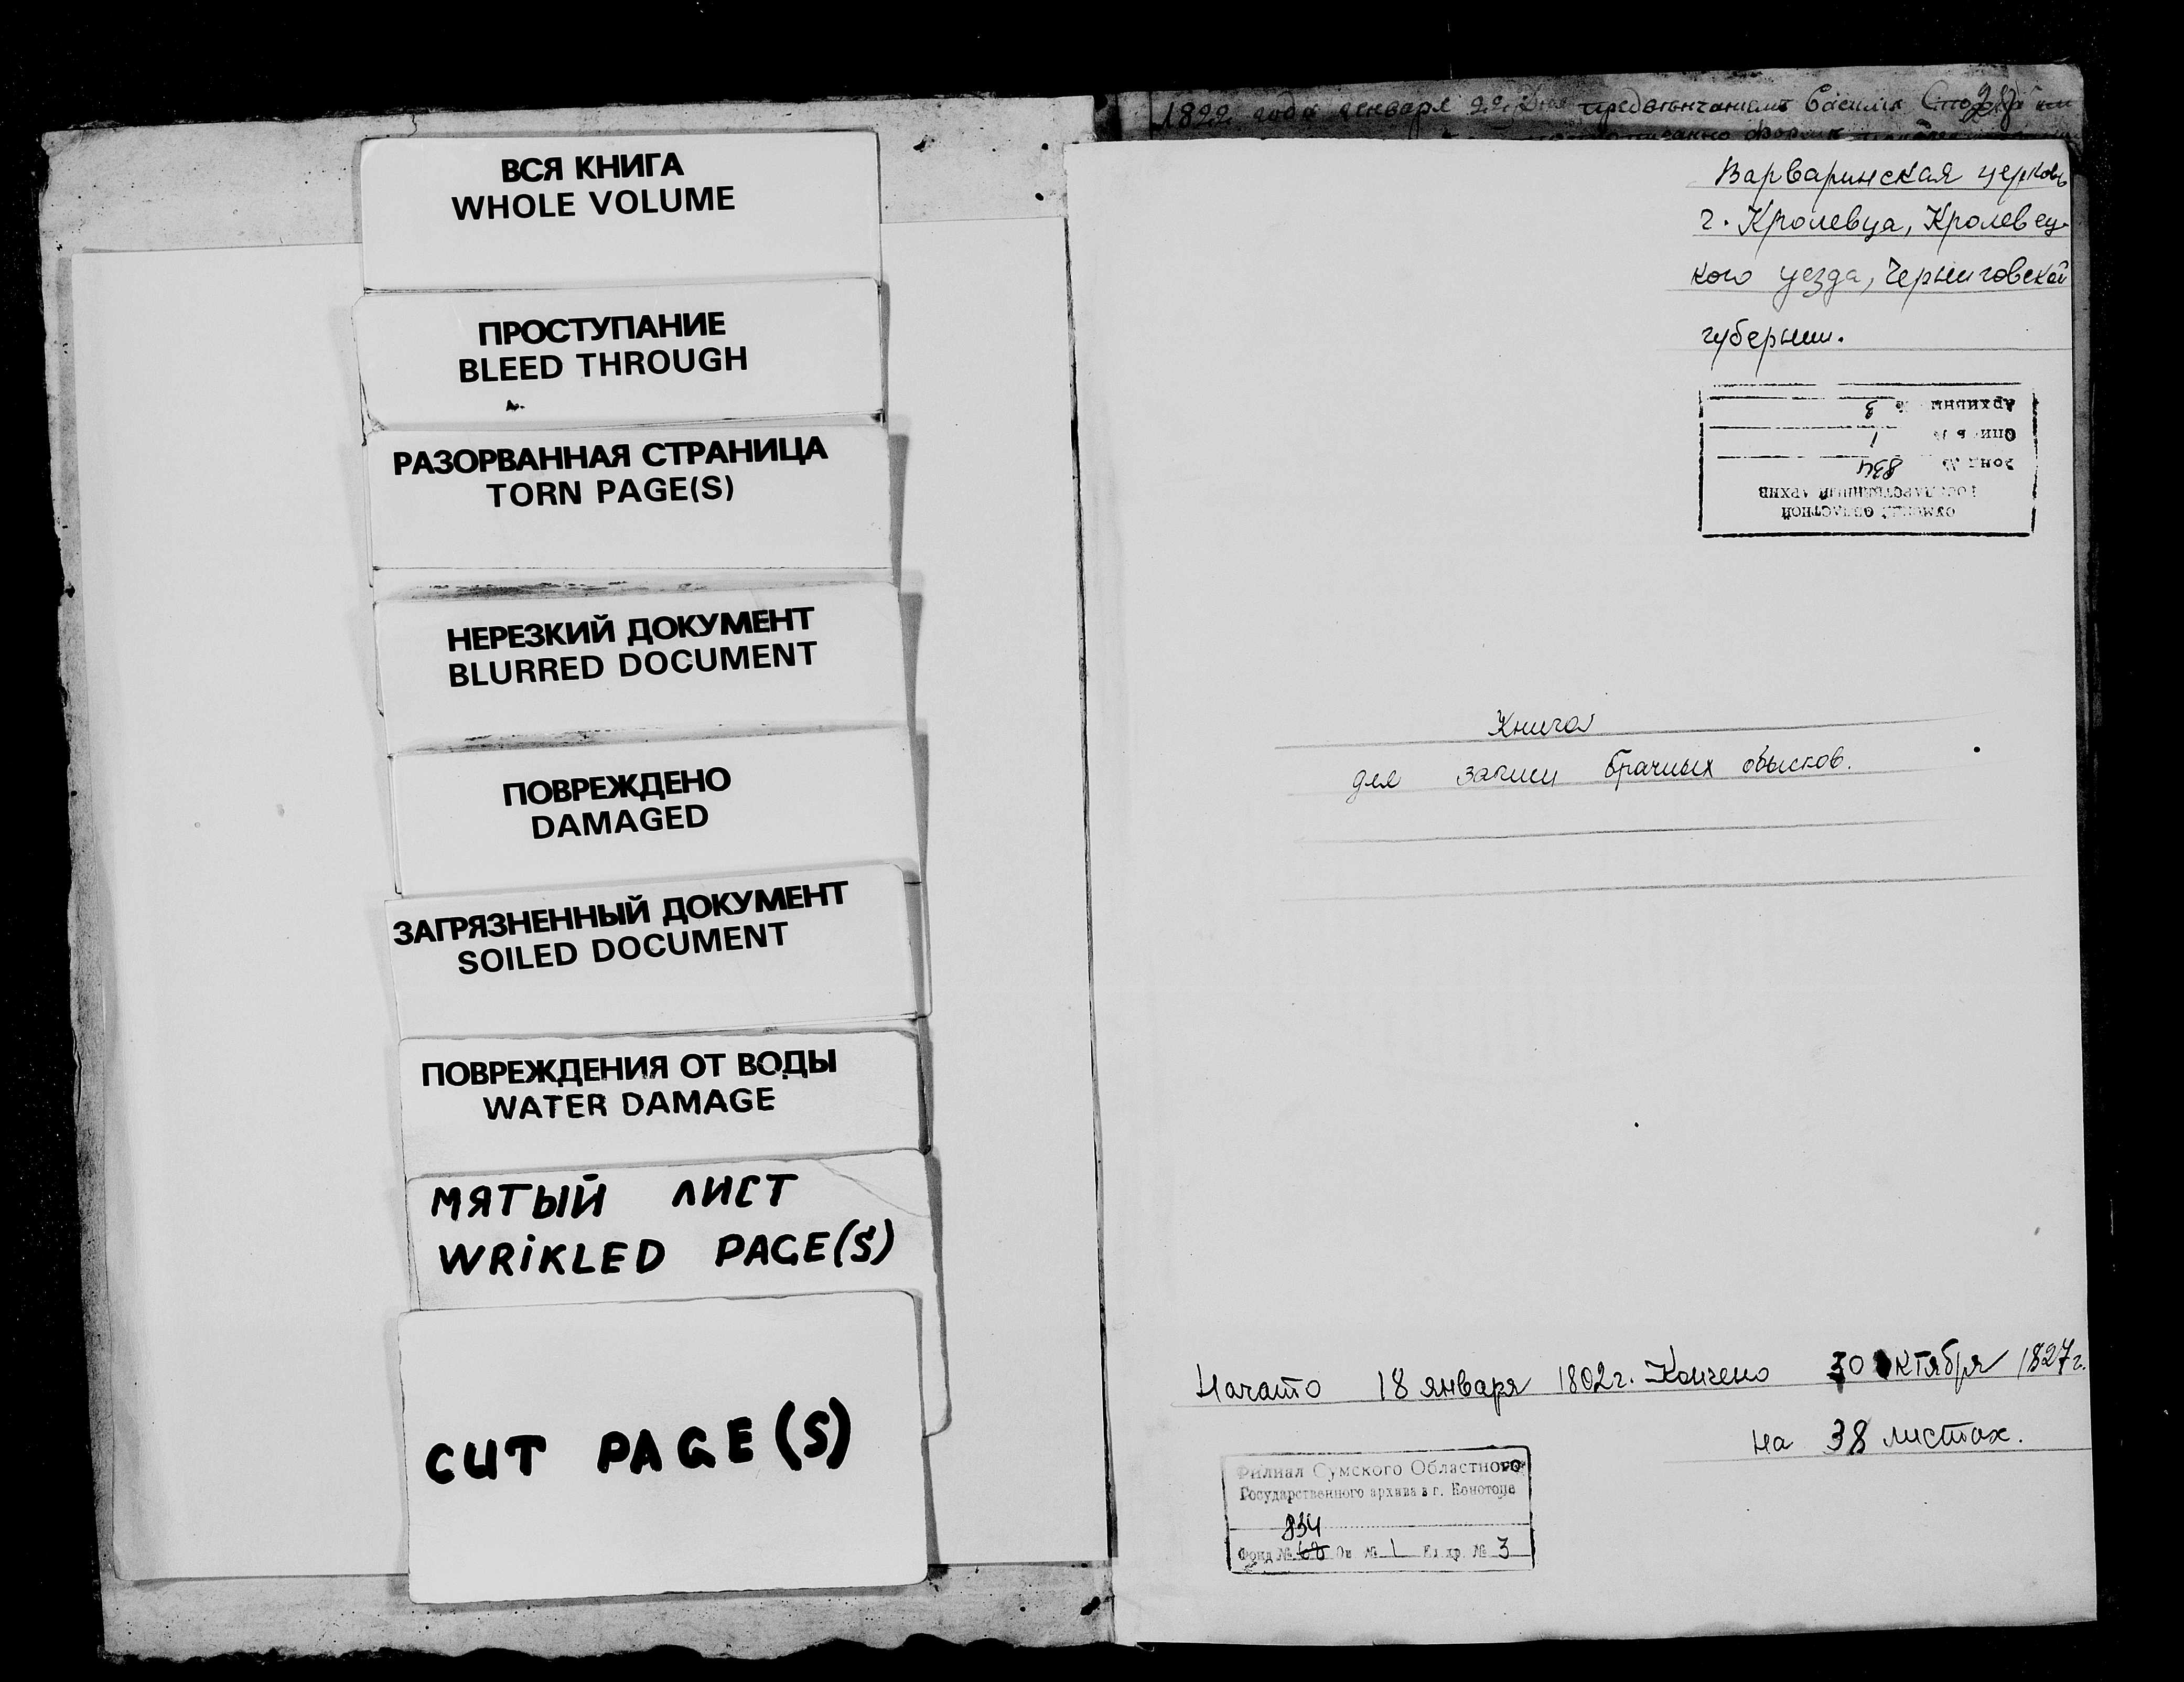 ВСЯ КНИГА
WHOLE VOLUME
ПРОСТУПАНИЕ
BLEED THROUGH
РАЗОРВАННАЯ СТРАНИЦА
TORN PAGE(S)
НЕРЕЗКИЙ ДОКУМЕНТ
BLURRED DOCUMENT
ПОВРЕЖДЕНО
DAMAGED
ЗАГРЯЗНЕННЫЙ ДОКУМЕНТ
SOILED DOCUMENT
ПОВРЕЖДЕНИЯ ОТ ВОДЫ
WATER DAMAGE
МЯТЫЙ ЛИСТ
WRIKLED PAGE(S)
CUT PAGE(S)
1822 года генваря 22 дня предвенчанием Василия
Варваринская церковь
г. Кролевца, Кролевец-
кого уезда, Черниговской
губернии.
СУМСКИЙ ОБЛАСТНОЙ
ГОСУДАРСТВЕННЫЙ АРХИВ
Фонд № 834
Опись № 1
Архивный № 3
Книга
для записи брачных обысков.
Начато 18 января 1802г. Кончено 30 октября 1827г.
на 38 листах.
Филиал Сумского Областного
Государственного архива в г. Конотопе
834
Фонд № 68 Оп № 1 Ед. хр. № 3